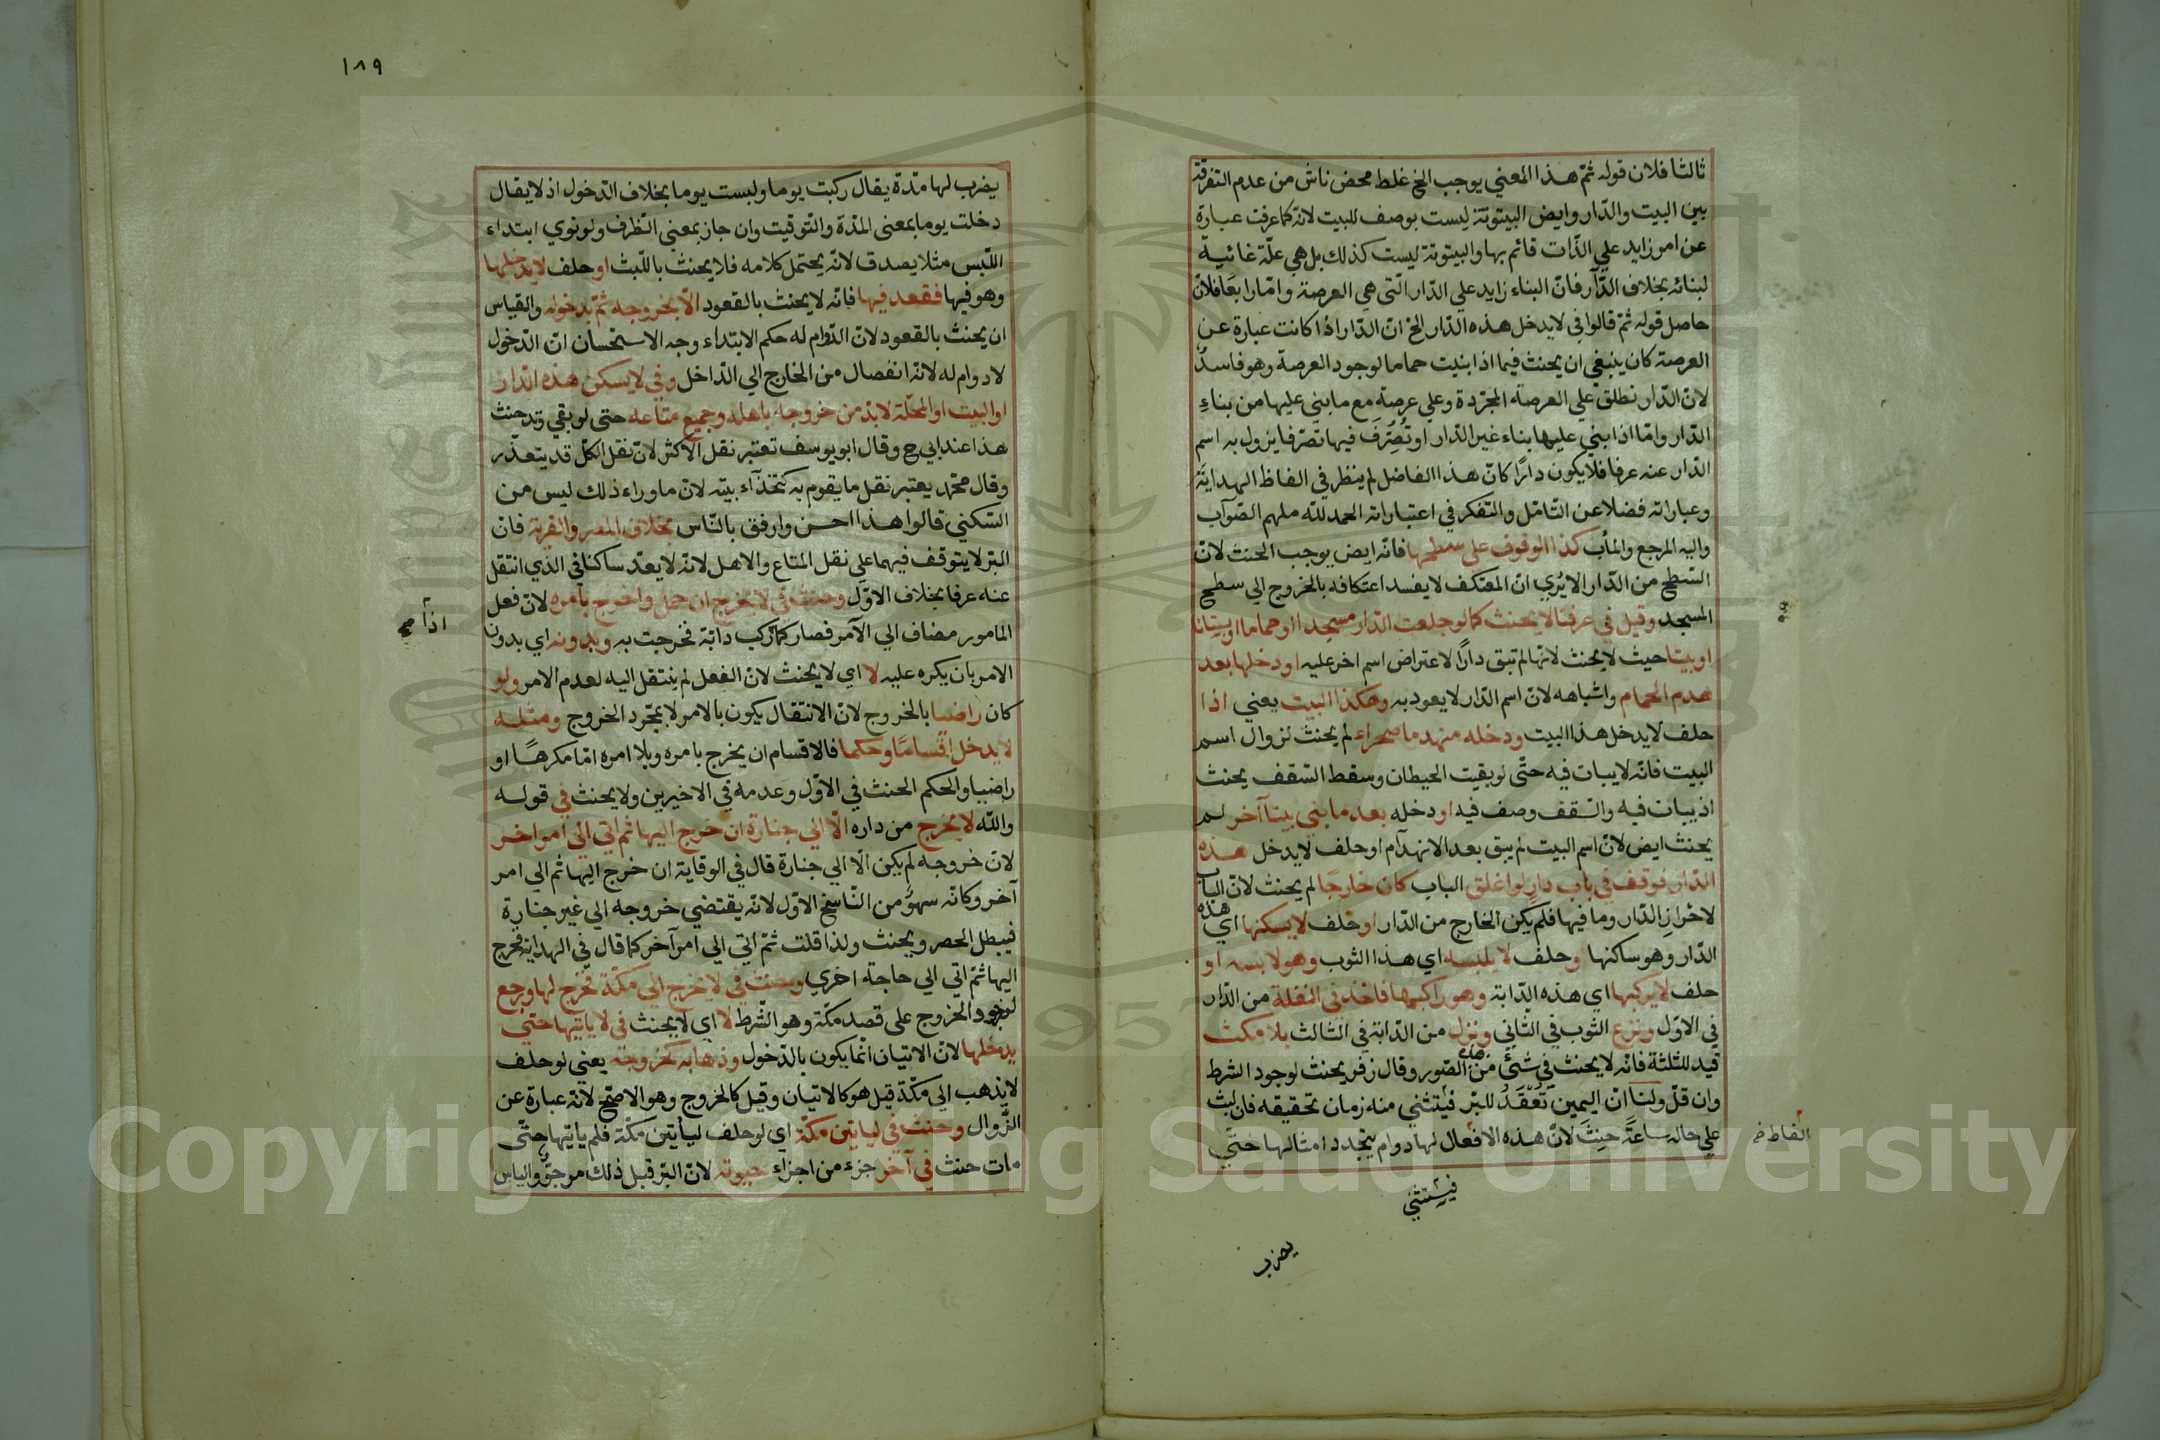 ثالثا فلان قوله ثمّ هذا المعني يوجب الخ غلط محض ناش من عدم التفرقة
بين البيت والدّار وايض البيتوتة ليست بوصف للبيت لانّه كما عرفت عبارة
عن امر زايد علي الذّات قائم بها والبيتوتة ليست كذلك بل هي علّة غائيّة
لبنائه بخلاف الدّار فانّ البناء زايد علي الدّار الّتي هي العرصة وامّا رابعا فلانّ
حاصل قوله ثمّ قالوا في لا يدخل هذه الدّار الخ انّ الدّار اذا كانت عبارة عن
العرصة كان ينبغي ان يحنث فيما اذا بنيت حماما لوجود العرصة وهو فاسد
لانّ الدّار نطلق علي العرصة المجرّدة وعلي عرصة مع ما بني عليها من بناء
الدّار وامّا اذا بني عليها بناء غير الدّار او تُصُرِّفَ فيها تصرّفا يزول به اسم
الدّار عنه عرفا فلا يكون دارًا كانّ هذا الفاضل لم ينظر في الفاظ الهداية
وعباراته فضلا عن التّامّل والتفكر في اعتباراته الحمد للّه ملهم الصّواب
واليه المرجع والمأب كذا الوقوف علي سطحها فانّه ايض يوجب الحنث لانّ
السّطح من الدّار الا يُري انّ المعتكف لا يفسد اعتكافه بالخروج الي سطح
المسجد وقيل في عرفنا لا يحنث كما لو جعلت الدّار مسجدا او حماما او بستانا
او بيتا حيث لا يحنث لانّها لم تبق دارًا لاعتراض اسم اخر عليه او دخلها بعد
هدم الحمام واشباهه لانّ اسم الدّار لا يعود به وهكذا البيت يعني اذا
حلف لا يدخل هذا البيت ودخله منهدما صحراء لم يحنث لزوال اسم
البيت فانّه لا يبات فيه حتّي لو بقيت الحيطان وسقط السّقف يحنث
اذ يبات فيه والسّقف وصف فيه او دخله بعد ما بني بيتا آخر لم
يحنث ايض لانّ اسم البيت لم يبق بعد الانهدام او حلف لا يدخل هذه
الدّار فوقف في باب دار لو اغلق الباب كان خارجًا لم يحنث لانّ الباب
لاحراز الدّار وما فيها فلم يكن الخارج من الدّار او حلف لا يسكنها اي هذه
الدّار وهو ساكنها او حلف لا يلبسه اي هذا الثوب وهو لابسه او
حلف لا يركبها اي هذه الدّابة وهو راكبها فاخذ في النقلة من الدّار
في الاوّل ونزع الثوب في الثّاني ونزل من الدّابة في الثالث بلا مكث
قيد للثلثة فانّه لا يحنث في شئ من هذه الصّور وقال زفر يحنث لوجود الشرط
وان قلّ ولنا انّ اليمين تُعْقَدُ للبرّ فيتثني منه زمان تحقيقه فان لبث
علي حاله ساعةً حنِثَ لانّ هذه الافعال لها دوام يتجدد امثالها حتّي
الفاظ خ
فيستثني
يضرب
١٨٩
يضرب لها مدّة يقال ركبت يوما ولبست يوما بخلاف الدّخول اذ لا يقال
دخلت يوما بمعني المدّة والتّوقيت وان جاز بمعني الظّرف ولو نوي ابتداء
اللّبس مثلا يصدق لانّه يحتمل كلامه فلا يحنث باللّبث او حلف لا يدخلها
وهو فيها فقعد فيها فانّه لا يحنث بالقعود الّا بخروجه ثمّ بدخوله والقياس
ان يحنث بالقعود لانّ الدّوام له حكم الابتداء وجه الاستحسان انّ الدّخول
لا دوام له لانّه انفصال من الخارج الي الدّاخل وفي لا يسكن هذه الدّار
او البيت او المحلّة لابدّ من خروجه باهله وجميع متاعه حتي لو بقي وتد حنث
هذا عند ابي ح وقال ابو يوسف تعتبر نقل الاكثر لانّ نقل الكلّ قد يتعذّر
وقال محمّد يعتبر نقل ما يقوم به كتخذآء بيته لانّ ما وراء ذلك ليس من
السّكني قالوا هذا احسن وارفق بالنّاس بخلاف المصر والقرية فان
البرّ لا يتوقف فيهما علي نقل المتاع والاهل لانّه لا يعدّ ساكنا في الّذي انتقل
عنه عرفا بخلاف الاوّل وحنث في لا يخرج ان حمل واخرج بامره لانّ فعل
المامور مضاف الي الآمر فصار كما ركب دابّة فخرجت به وبدونه اي بدون
اذا صح
الامر بان يكره عليه لا اي لا يحنث لانّ الفعل لم ينتقل اليه لعدم الامر ولو
كان راضيا بالخروج لانّ الانتقال يكون بالامر لا بمجرّد الخروج ومثله
لا يدخل اقسامًا وحكما فالاقسام ان يخرج بامره وبلا امره امّا مكرهًا او
راضيا والحكم الحنث في الاوّل وعدمه في الاخيرين ولا يحنث في قوله
واللّه لا يخرج من داره الّا الي جنازة ان خرج اليها ثم اتي الي امر اخر
لانّ خروجه لم يكن الّا الي جنازة قال في الوقاية ان خرج اليها ثم الي امر
آخر وكانّه سهو من النّاسخ الاوّل لانّه يقتضي خروجه الي غير جنازة
فيبطل الحصر ويحنث ولذا قلت ثمّ اتي الي امر آخر كما قال في الهداية فخرج
اليها ثمّ اتي الي حاجة اخري وحنث في لا يخرج الي مكّة فخرج لها ورجع
لوجود الخروج علي قصد مكّة وهو الشّرط لا اي لا يحنث في لا ياتيها حتي
يدخلها لانّ الاتيان انّما يكون بالدّخول وذهابه كخروجه يعني لو حلف
لا يذهب الي مكّة قيل هو كالاتيان وقيل كالخروج وهو الاصحّ لانّه عبارة عن
الزّوال وحنث في لياتين مكّة اي لو حلف لياتين مكّة فلم ياتها حتّي
مات حنث في آخر جزء من اجزاء حيوته لانّ البرّ قبل ذلك مرجوّ والياس